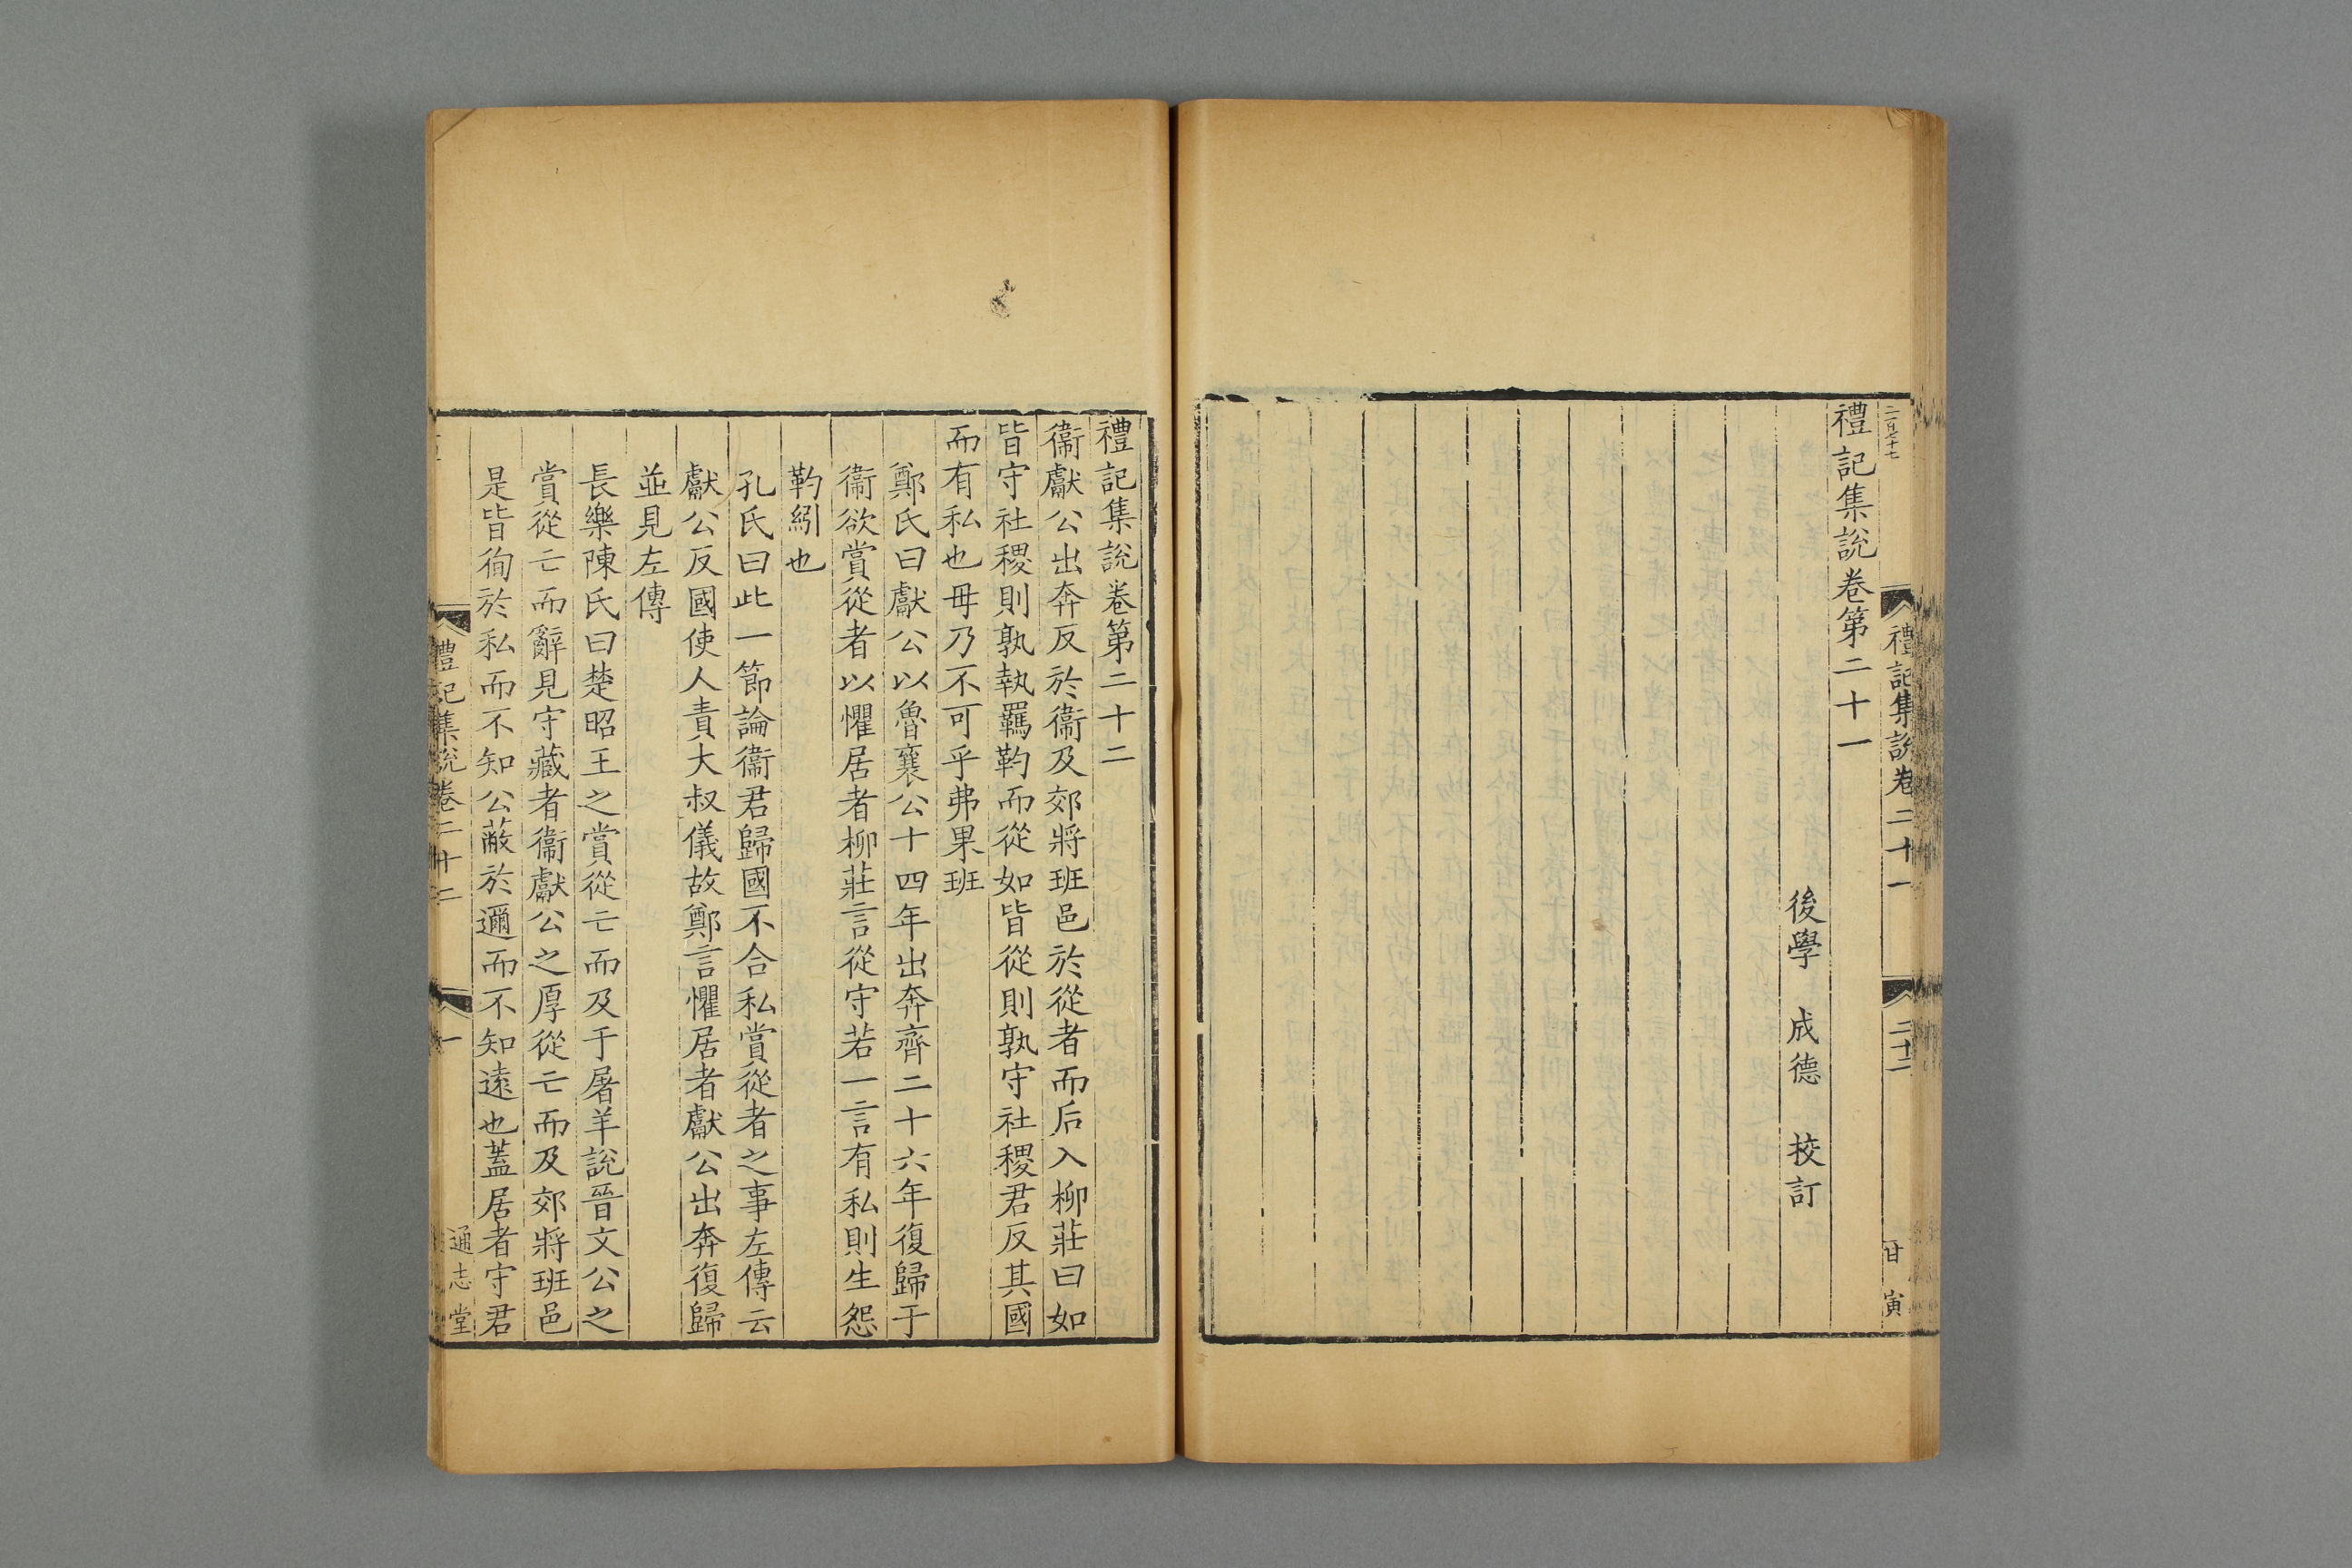 禮記集說卷二十一
二十一
甘
寅
禮記集說卷第二十一
後學 成德 校訂
禮記集說卷第二十二
衞獻公出奔反於衞及郊將班邑於從者而后入柳莊曰如
皆守社稷則孰執羈靮而從如皆從則孰守社稷君反其國
而有私也毋乃不可乎弗果班
鄭氏曰獻公以魯襄公十四年出奔齊二十六年復歸于
衞欲賞從者以懼居者柳莊言從守若一言有私則生怨
靮紖也
孔氏曰此一節論衞君歸國不合私賞從者之事左傳云
獻公反國使人責大叔儀故鄭言懼居者獻公出奔復歸
並見左傳
長樂陳氏曰楚昭王之賞從亡而及于屠羊說晉文公之
賞從亡而辭見守藏者衞獻公之厚從亡而及郊將班邑
是皆徇於私而不知公蔽於邇而不知遠也蓋居者守君
禮記集說卷二十二
一
通志堂